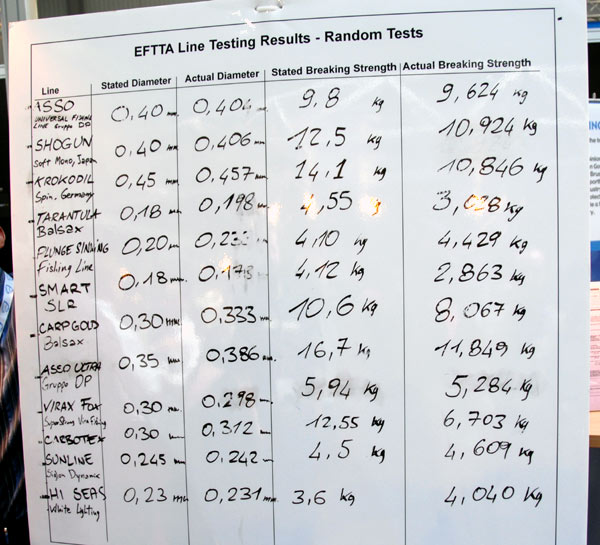 EFTTA Line Testing Results - Random Tests
Line Stated Diameter Actual Diameter Stated Breaking Strength Actual Breaking Strength
ISSO 0,40 mm 0,406 mm 9,8 kg 9,624 kg
UNIVERSAL FISHING
LINE Gruppo DP
SHOGUN 0,40 mm 0,406 mm 12,5 kg 10,924 kg
Soft Mono, Japan
KROKODIL 0,45 mm 0,457 mm 14,1 kg 10,846 kg
Spin. Germany
TARANTULA 0,18 mm 0,198 mm 4,55 kg kg
Balsax
PLUNGE SINKING 0,20 mm mm 4,10 kg 4,429 kg
Fishing Line
SMART 0,18 mm mm 4,12 kg 2,863 kg
SLR
CARPGOLD 0,30 mm 0,333 mm 10,6 kg 8,067 kg
Balsax
ASSO ULTRA 0,35 mm 0,386 mm 16,7 kg 11,849 kg
Gruppo DP
VIRAX FOX 0,30 mm 0,298 mm 5,94 kg 5,284 kg
CARBOTEX 0,30 mm 0,312 mm 12,55 kg 6,703 kg
SUNLINE 0,245 mm 0,242 mm 4,5 kg 4,609 kg
Siglon Dynamic
HI SEAS 0,23 mm 0,231 mm 3,6 kg 4,040 kg
White Lighting